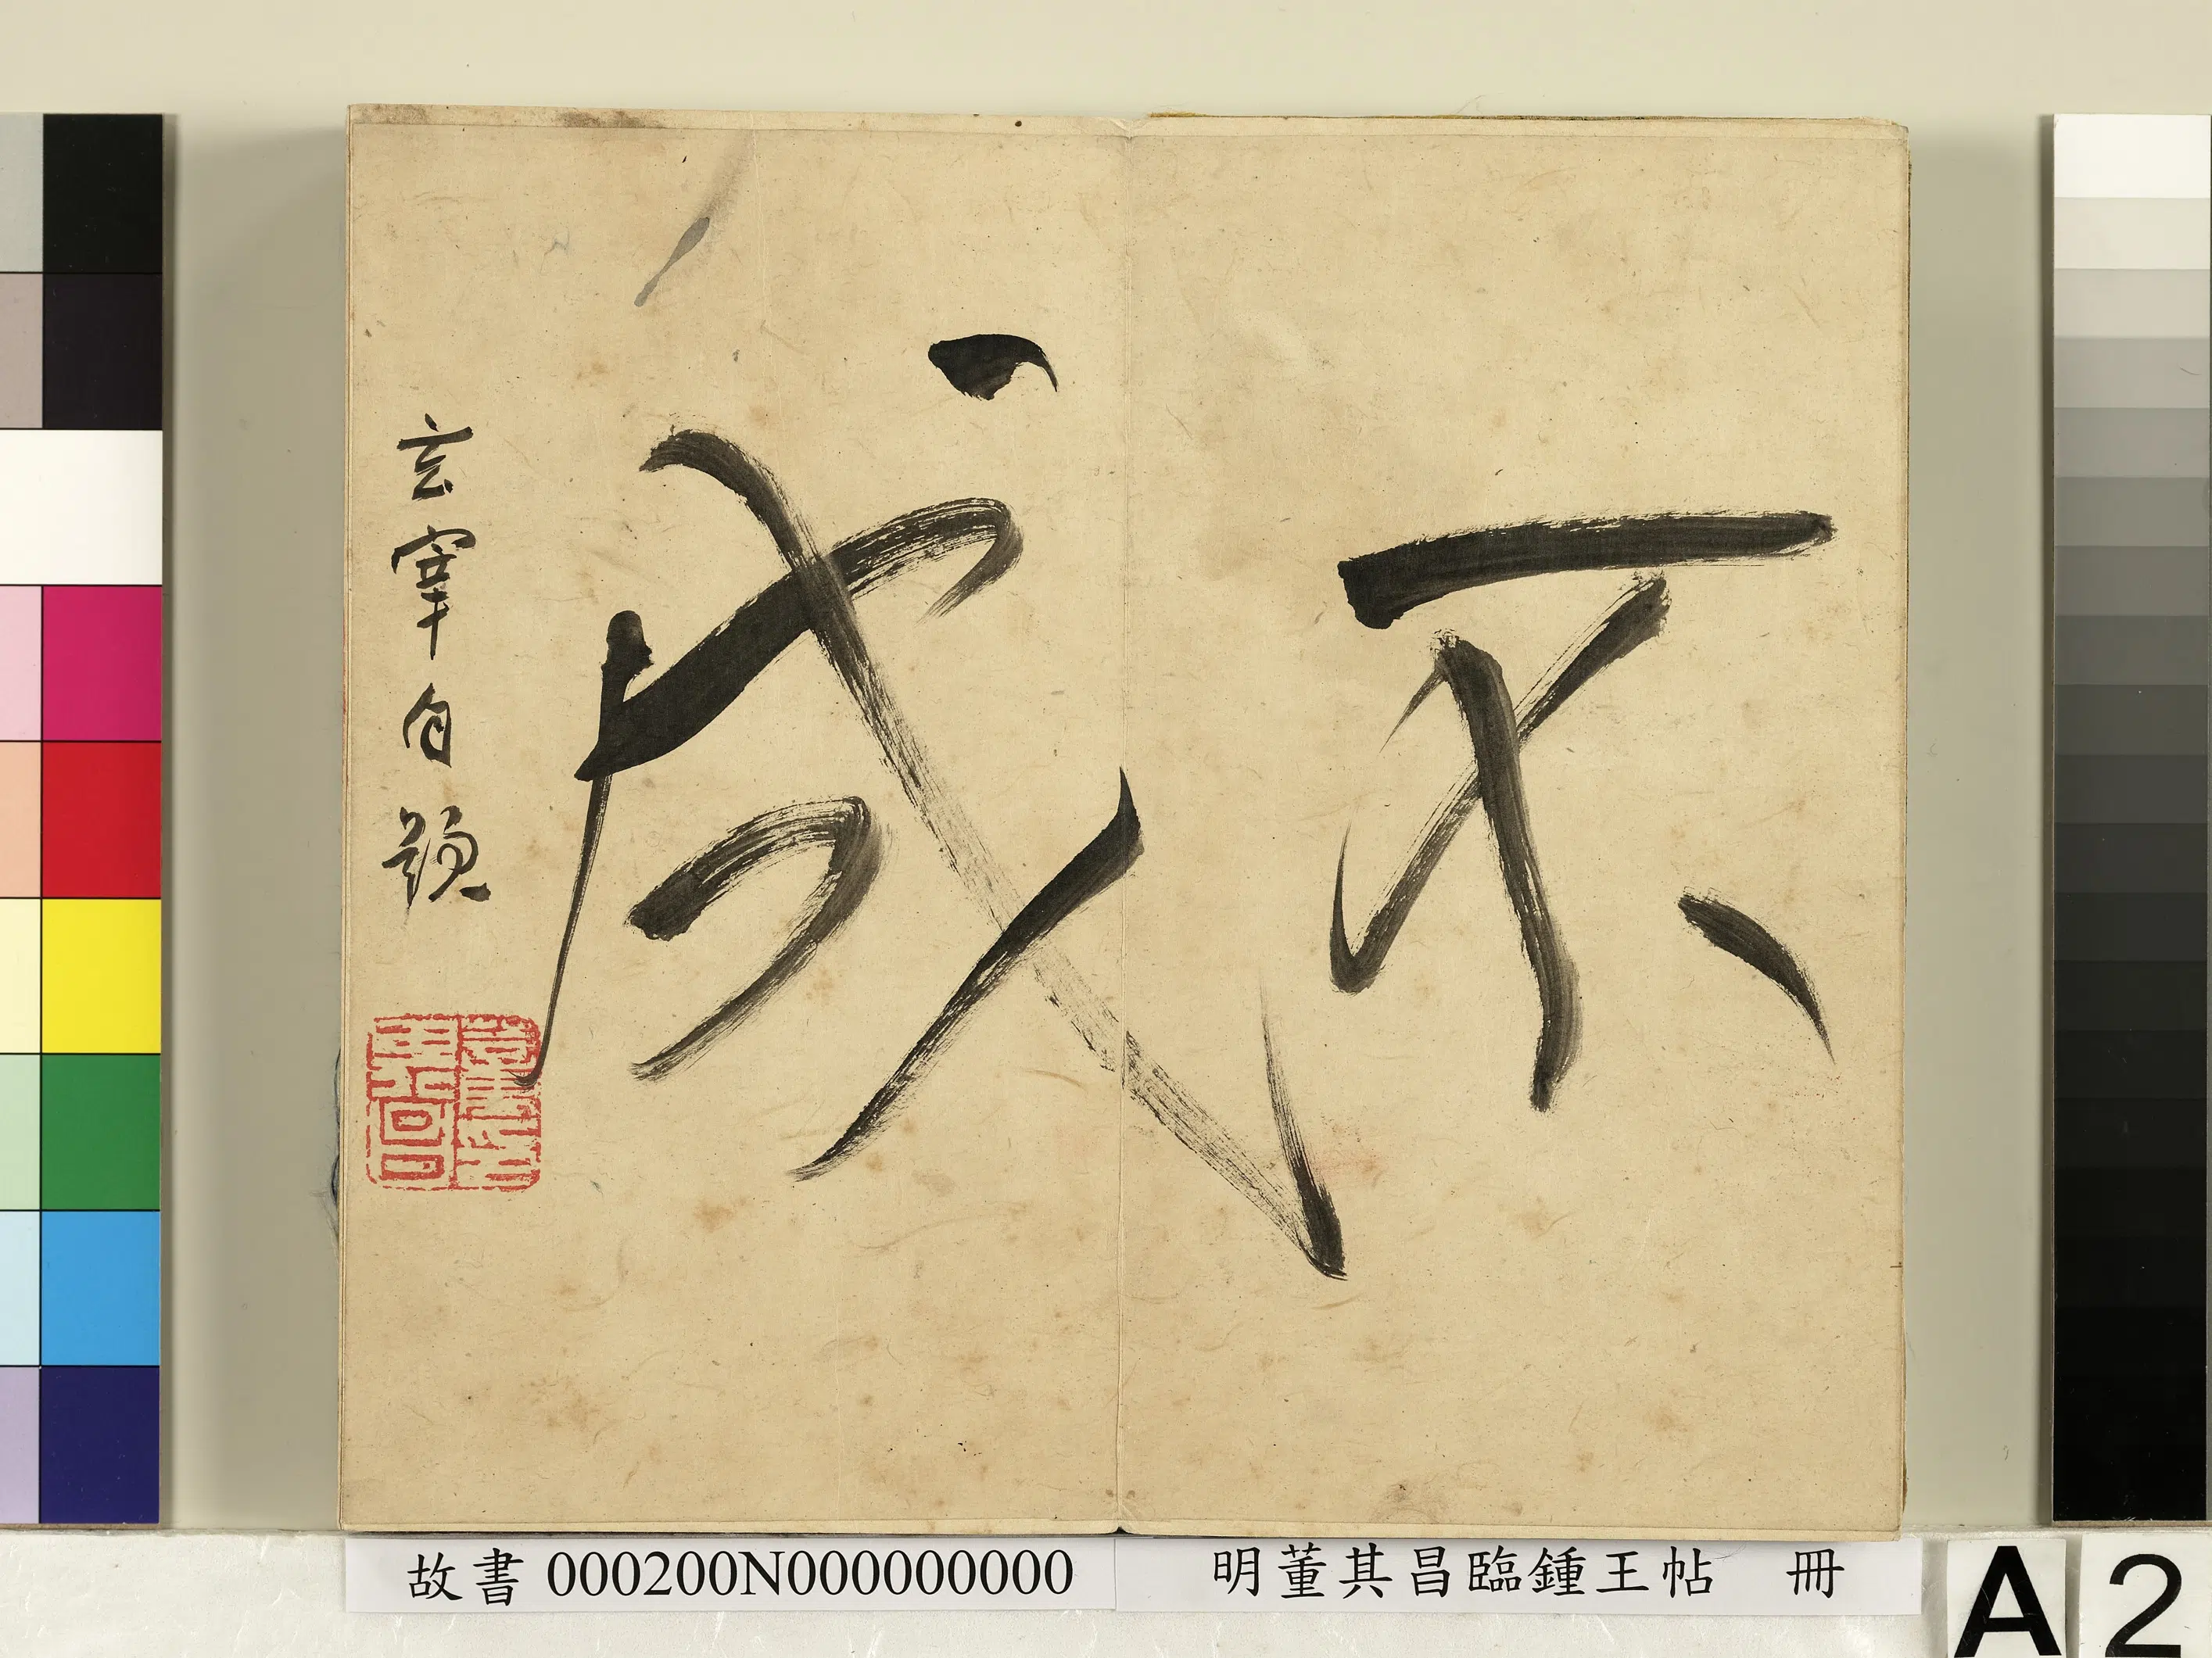 不成
玄宰自題
故書 000200N000000000
明董其昌臨鍾王帖 冊
A 2